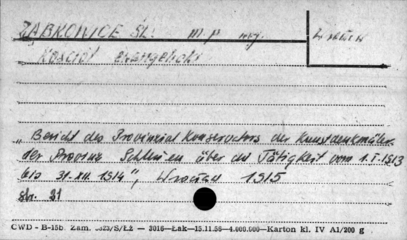 ZĄBKOWICE ŚL. m.p. woj. Wrocław
Kościół ewangelicki
"Bericht des Provinzial Konservators der Kunstdenkmäler
der Provinz Schlesien über die Tätigkeit vom 1.I.1913
bis 31.XII.1914", Wrocław 1915
str. 31
CWD - B-15b. Zam. /S/Łż — 3016—Łak—15.11.55—4.000.000—Karton kl. IV A1/200 g